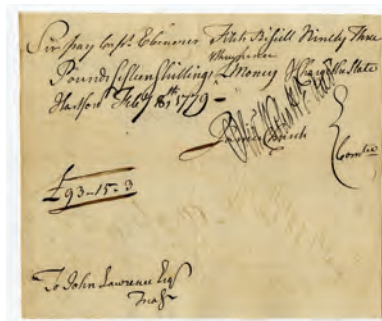 Sir Pay Capt. Ebenezer Fitch Bissell Ninety Three
& three pence
Pounds fifteen shillings L Money & Charge the State
Hartford Feby 18th 1779 -
Church
Comtee
£93-15-3
To John Lawrence Esqr
Treasr